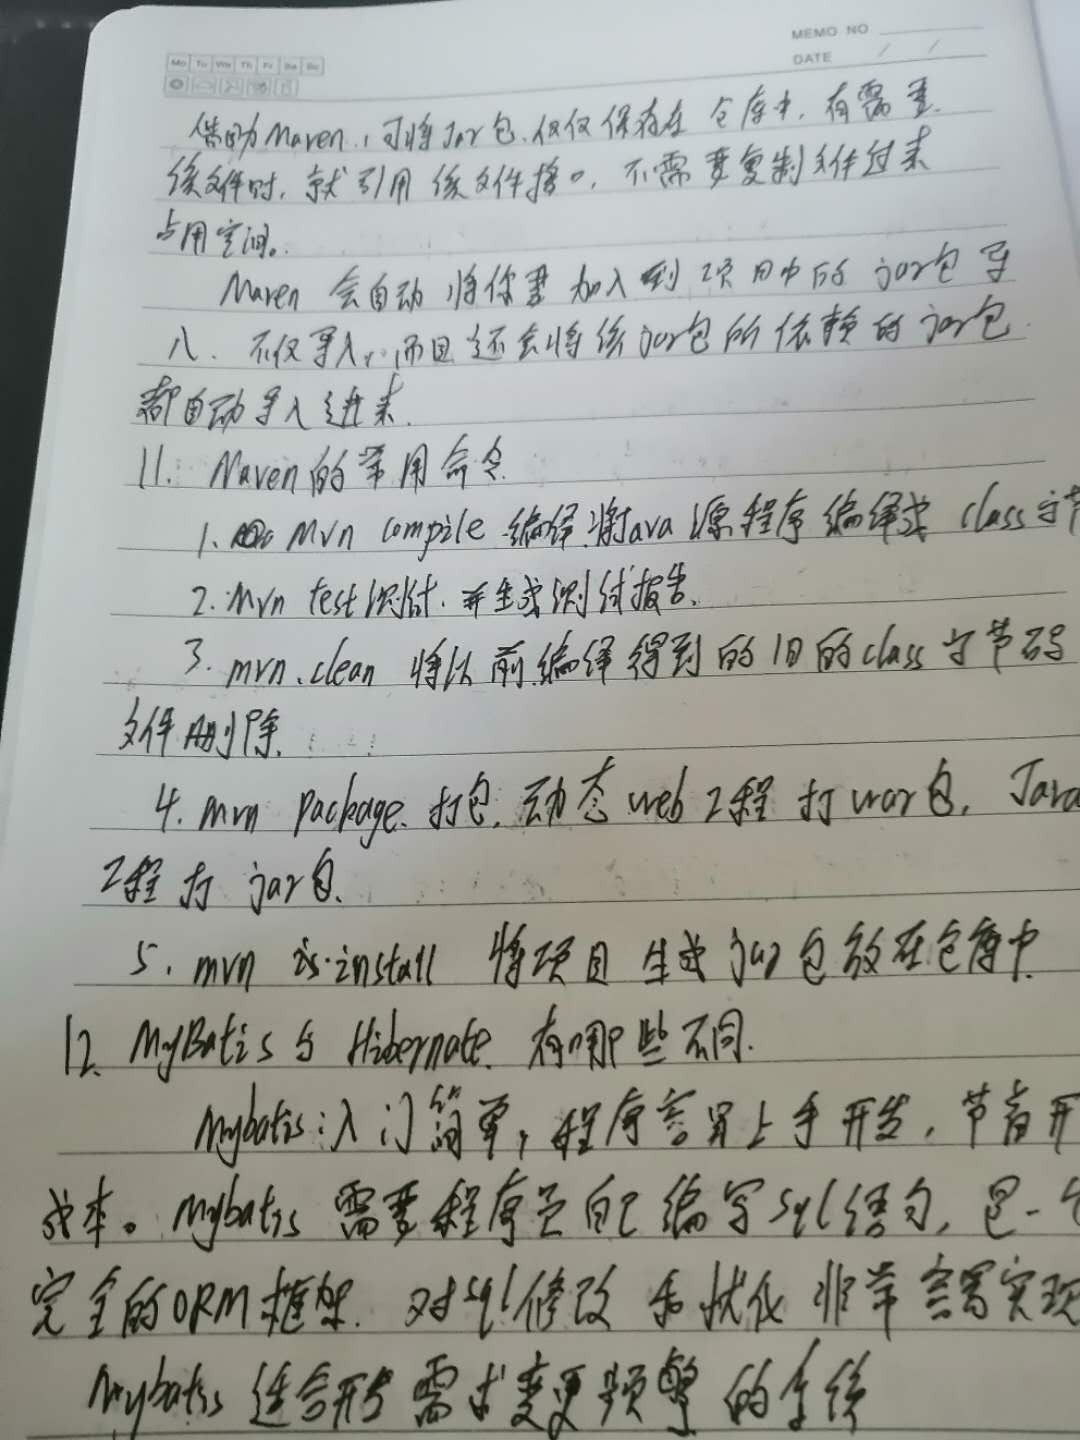 MEMO NO
DATE / /
Mo Tu We Th Fr Sa Su
借助Maven,可将Jar包仅仅保存在仓库中,有需要
该文件时,就引用该文件接口,不需要复制文件过来
占用空间。
Maven会自动将你要加入到项目中的jar包导
入,不仅导入,而且还会将该jar包所依赖的jar包
都自动导入进来.
11. Maven的常用命令
1. mvn compile 编译,将Java源程序编译成 class字节
2. mvn test测试,并生成测试报告.
3. mvn clean 将以前编译得到的旧的class字节码
文件删除.
4. mvn package. 打包,动态web工程打war包, Java
工程打 jar包.
5. mvn install 将项目生成jar包放在仓库中
12. MyBatis与Hibernate.有哪些不同.
Mybatis:入门简单,程序容易上手开发,节省开
成本。Mybatis需要程序员自己编写sql语句,是一个
完全的ORM框架.对sql修改和优化非常容易实现
Mybatis适合 需求变更频繁的系统